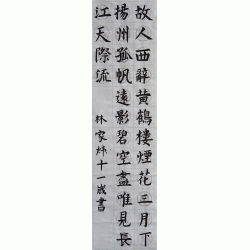 故人西辭黃鶴樓煙花三月下
揚州孤帆遠影碧空盡唯見長
江天際流
林家十一歲書